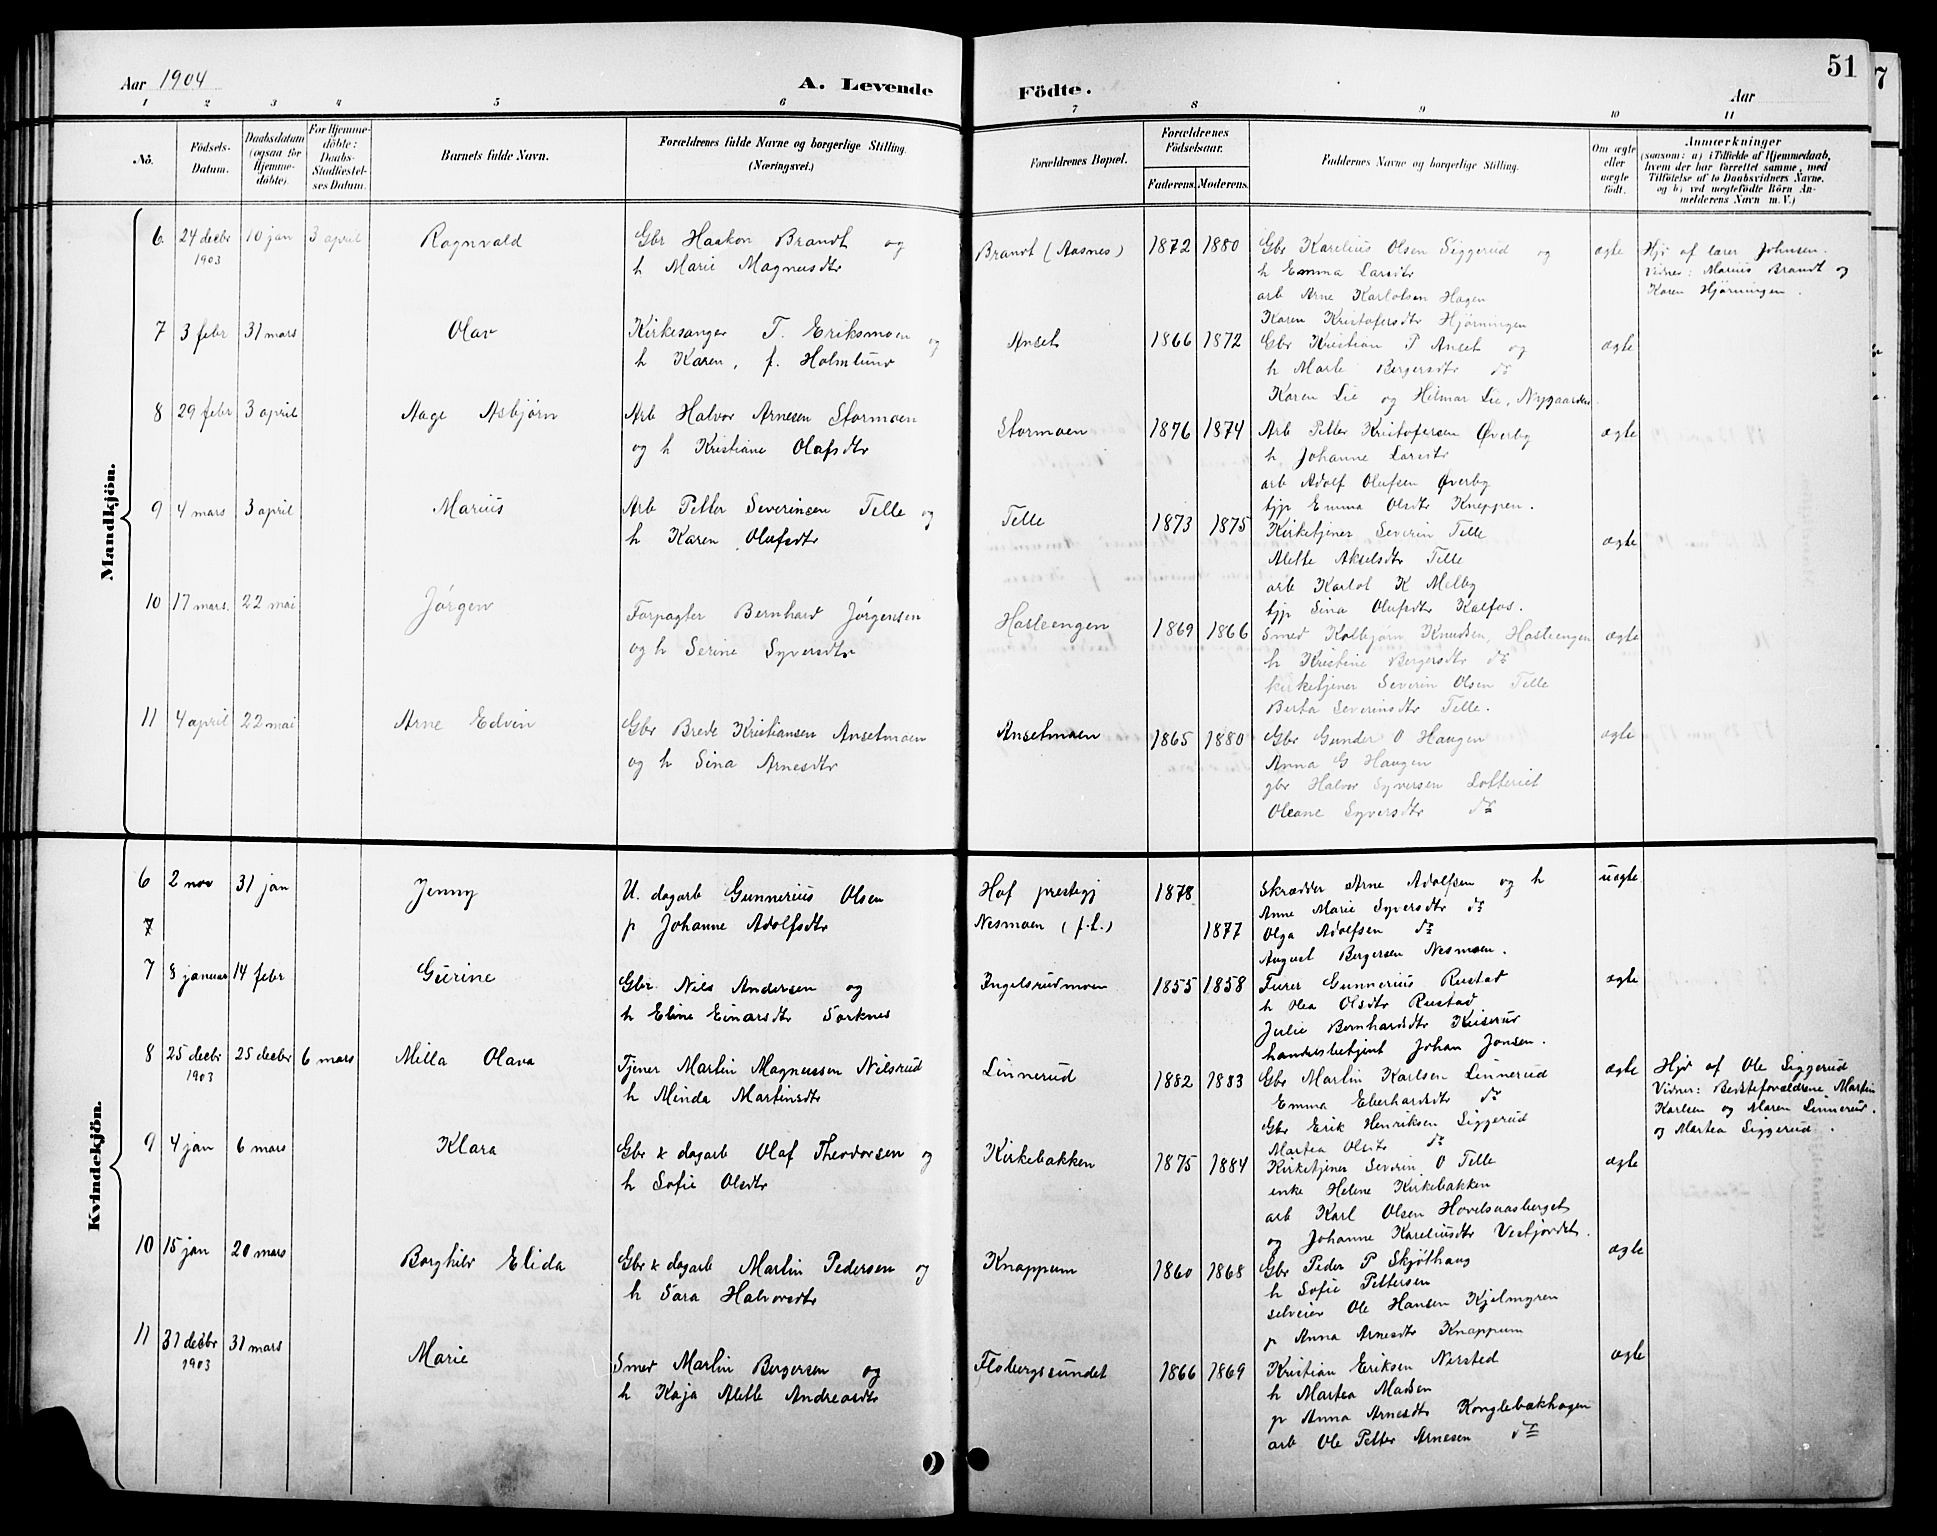 Aar 1904
A. Levende
Födte.
51
Aar
1 2 3 4 5 6 7 8 9 10 11
No.
Födsels-
Datum.
Daabsdatum
(ogsaa for
Hjemme-
döbte).
For Hjemme-
döbte:
Daabs-
Stadfæstel-
ses Datum.
Barnets fulde Navn.
Forældrenes fulde Navne og borgerlige Stilling.
(Næringsvei.)
Forældrenes Bopæl.
Forældrenes
Födselsaar.
Faderens. Moderens.
Faddernes Navne og borgerlige Stilling.
Om ægte
eller
uægte
födt.
Anmærkninger
(saasom: a) i Tilfælde af Hjemmedaab,
hvem der har forrettet samme, med
Tilföielse af to Daabsvidners Navne,
og b) ved uægtefödte Börn An-
melderens Navn m. V.)
Mandkjön.
6. 24 decbr 10 jan 3 april Ragnvald Gbr Haakon Brandt og Brandt (Aasnes) 1872 1880 Gbr Karelius Olsen Siggerud og ægte Hjd af lærer Johnsen.
1903 h Marie Magnusdtr h Emma Larsdtr Vidner: Marius Brandt og
arb Arne Karlotsen Hagen Karen Hjørningen.
Karen Kristofersdtr Hjørningen
7 3 febr 31 mars Olav Kirkesanger T. Eriksmoen og Anset 1866 1872 Gbr Kristian P Anset og ægte
h Karen, f. Holmlund h Marte Bergersdtr do
Karen Lie og Hilmar Lie, Nygaarden.
8 29 febr 3 april Aage Asbjørn Arb Halvor Arnesen Stormoen Stormoen 1876 1874 Arb Petter Kristofersen Øverby ægte
og h Kristiane Olafsdtr h Johanne Larsdtr
arb Adolf Olufsen Øverby
tjp Emma Olsdtr Knappen.
9 4 mars 3 april Marius Arb Petter Severinsen Telle og Telle 1873 1875 Kirketjener Severin Telle ægte
h Karen Olufsdtr Alette Akselsdtr Telle
arb Karlot K Melby
tjp Sina Olufsdtr Kalfos.
10 17 mars. 22 mai Jørgen Forpagter Bernhard Jørgensen Hasleengen 1869 1866 Smed Kolbjørn Knudsen, Hasleengen ægte
og h Serine Syversdtr h Kristine Bergersdtr do
kirketjener Severin Olsen Telle
Berta Severinsdtr Telle.
11 4 april 22 mai Arne Edvin Gbr Brede Kristiansen Ansetmoen Ansetmoen 1865 1880 Gbr Gunder O Haugen ægte
og h Sina Arnesdtr Anna G Haugen
gbr Halvor Syversen Lofteriet
Oleane Syversdtr do
Kvindekjön.
6 2 nov 31 jan Jenny U. dagarb Gunnerius Olsen Hof prestegj 1878 Skrædder Arne Adolfsen og h uægte
7 p Johanne Adolfsdtr Nesmoen (f.t.) 1877 Anne Marie Syversdtr do
Olga Adolfsen do
August Bergersen Nesmoen.
7 8 januar 14 febr Gurine Gbr. Nils Andersen og Ingelsrudmoen 1855 1858 Furer Gunnerius Rustad ægte
h Eline Einarsdtr Sorknes h Olea Olsdtr Rustad
Julie Bernhardsdtr Keiserud
handelsbetjent Johan Jonsen.
8 25 decbr 25 decbr 6 mars Milla Olava Tjener Martin Magnussen Nilsrud Linnerud 1882 1883 Gbr Martin Karlsen Linnerud ægte Hjd af Ole Siggerud
1903 h Minda Martinsdtr Emma Eberhardsdtr do Vidner: Bedsteforældrene Martin
Gbr Erik Henriksen Siggerud Karlsen og Maren Linnerud.
Martea Olsdtr do og Martea Siggerud.
9 4 jan 6 mars Klara Gbr & dagarb Olaf Theodorsen og Kirkebakken 1875 1884 Kirketjener Severin O Telle ægte
h Sofie Olsdtr enke Helene Kirkebakken
arb Karl Olsen Hovelsaasberget
og Johanne Kareliusdtr Vestjordet.
10 15 jan 20 mars Borghild Elida Gbr & dagarb Martin Pedersen og Knappum 1860 1868 Gbr Peder P Skjøthaug ægte
h Sara Halvorsdtr h Sofie Pettersen
selveier Ole Hansen Kjelmyren
p Anna Arnesdtr Knappum
11 31 decbr 31 mars Marie Smed Martin Bergersen og Flobergssundet 1866 1869 Kristian Eriksen Nersted ægte
1903 h Kaja Alette Andreasdtr h Martea Madsen
p Anna Arnesdtr Konglebækhagen
arb Ole Petter Arnesen do